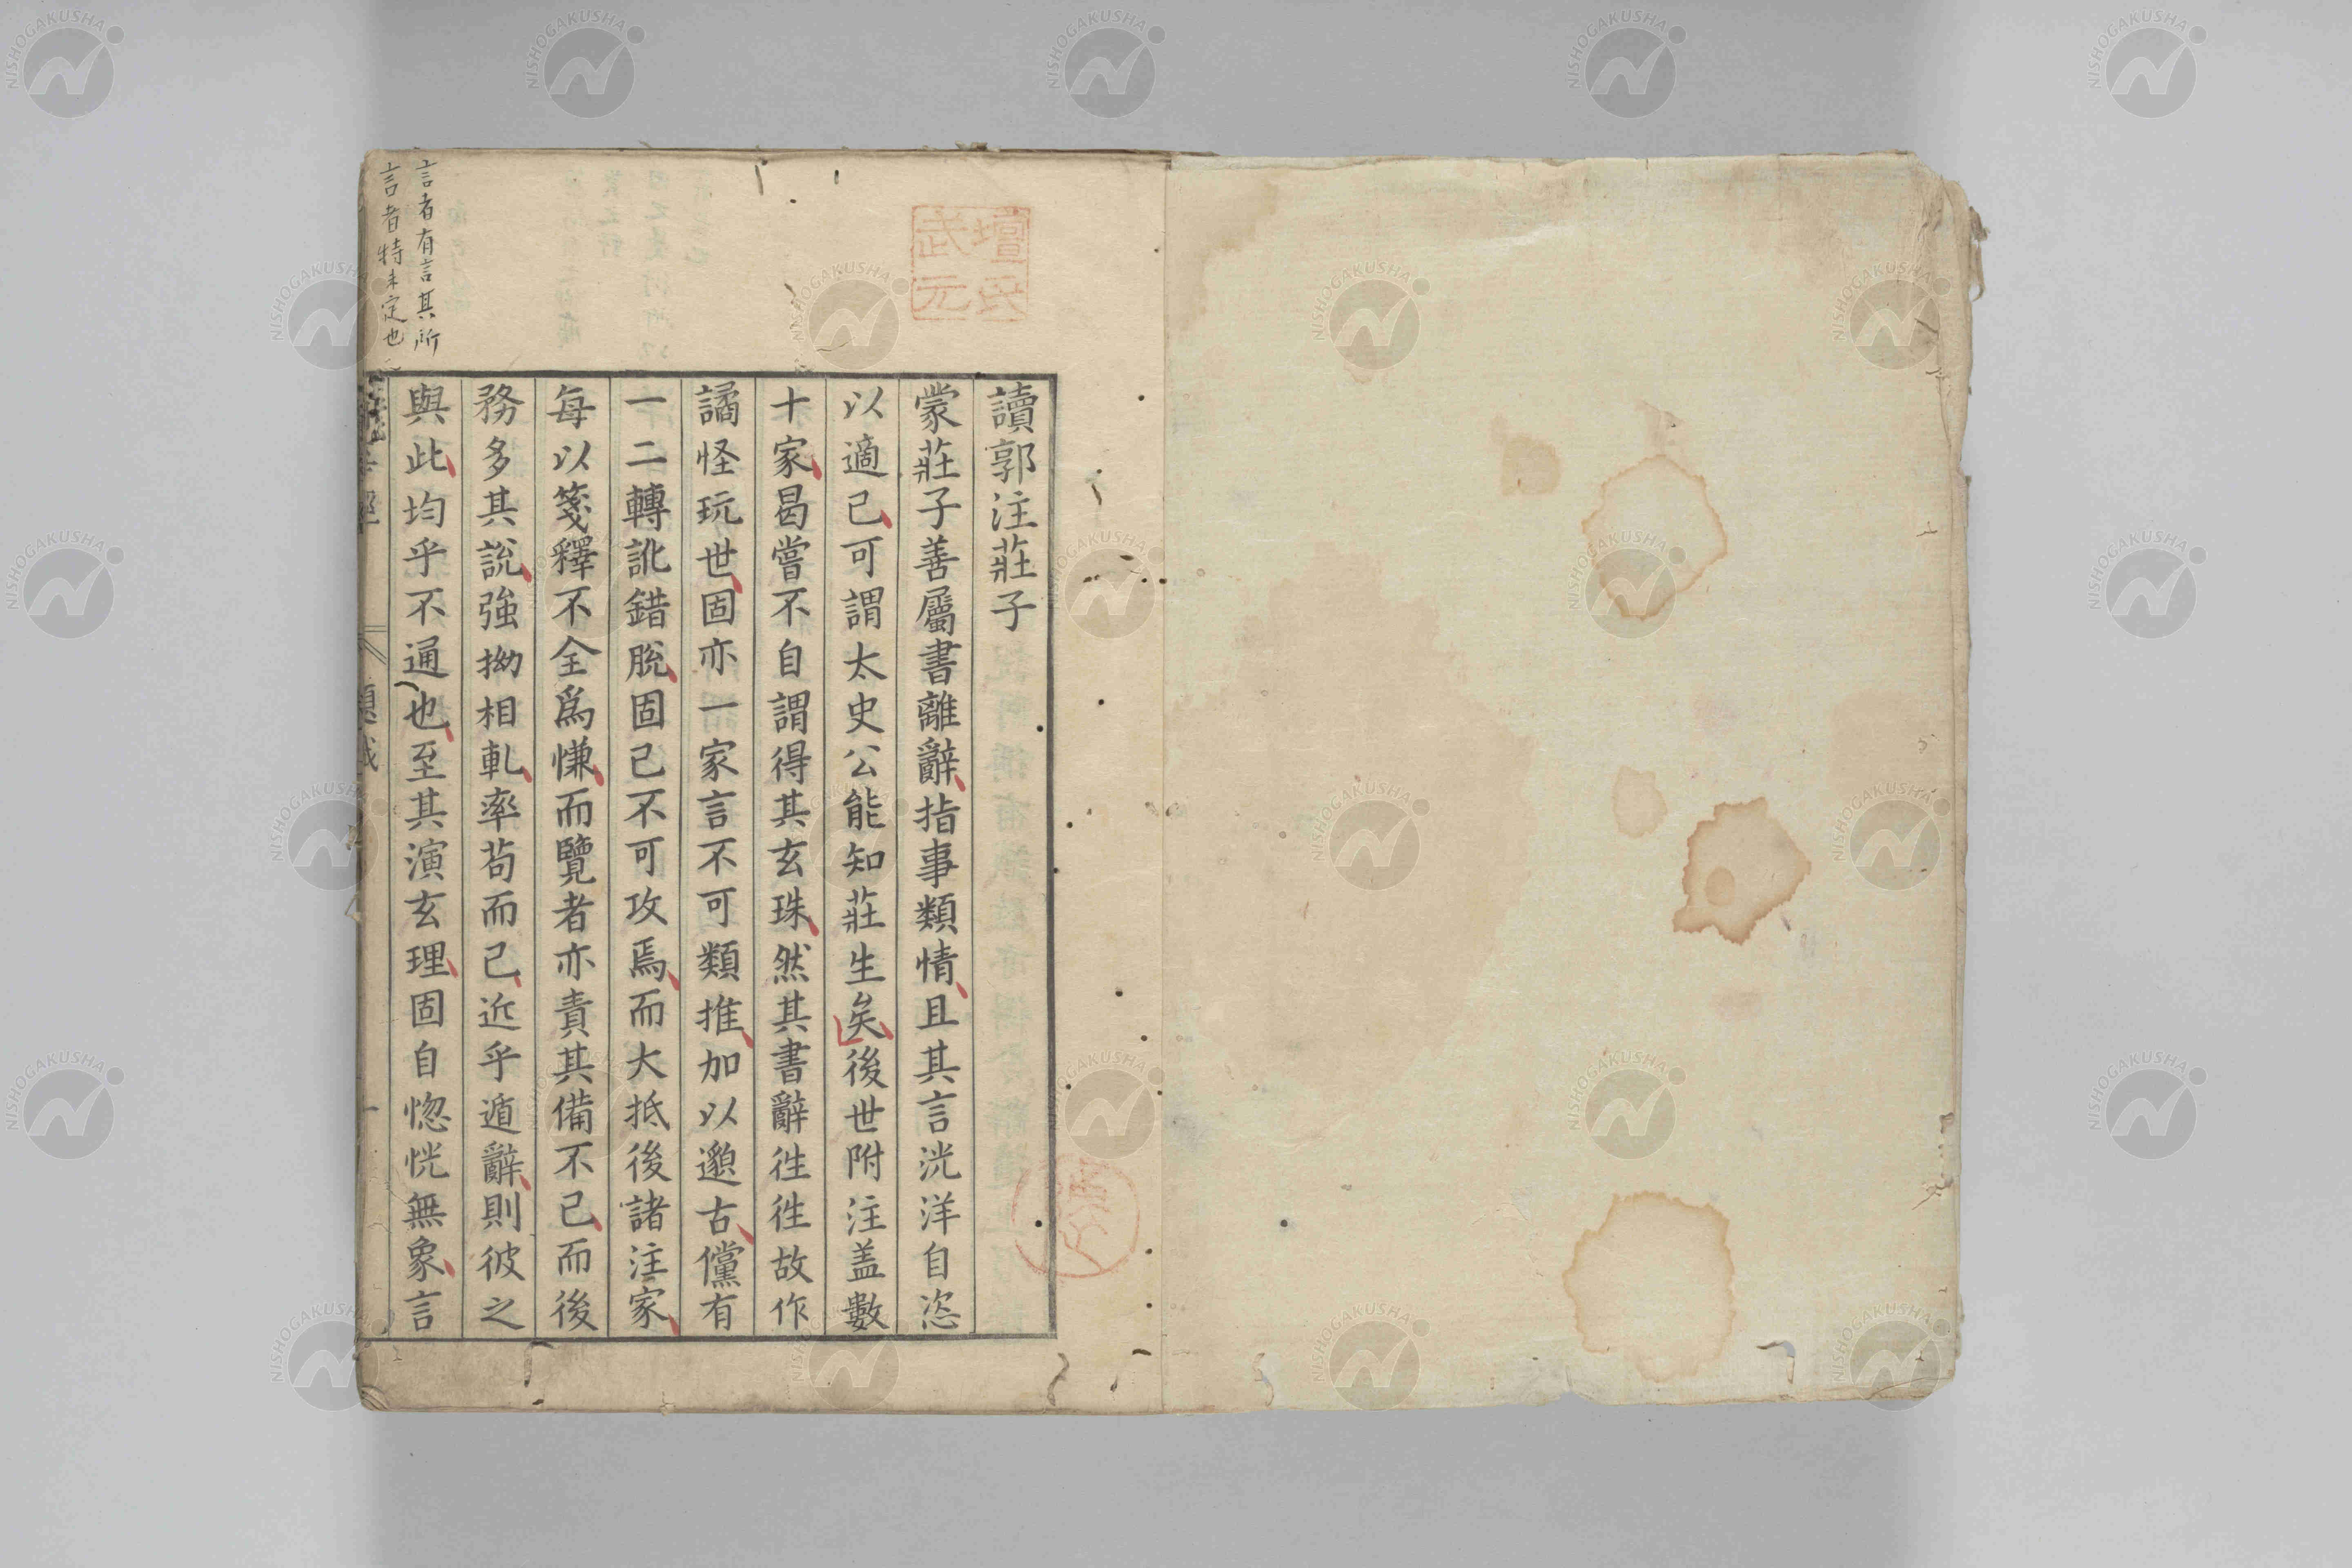 讀郭注莊子
蒙莊子善屬書離辭指事類情且其言洸洋自恣
以適己可謂太史公能知莊生矣後世附注盖數
十家曷嘗不自謂得其玄珠然其書辭徃徃故作
譎怪玩世固亦一家言不可類推加以邈古儻有
一二轉訛錯脫固已不可攻焉而大抵後諸注家
每以箋釋不全爲慊而覽者亦責其備不已而後
務多其說強拗相軋率苟而已近乎遁辭則彼之
與此均乎不通也至其演玄理固自惚恍無象言
言者有言其所
言者特未定也
壇氏
武元
NISHOGAKUSHA